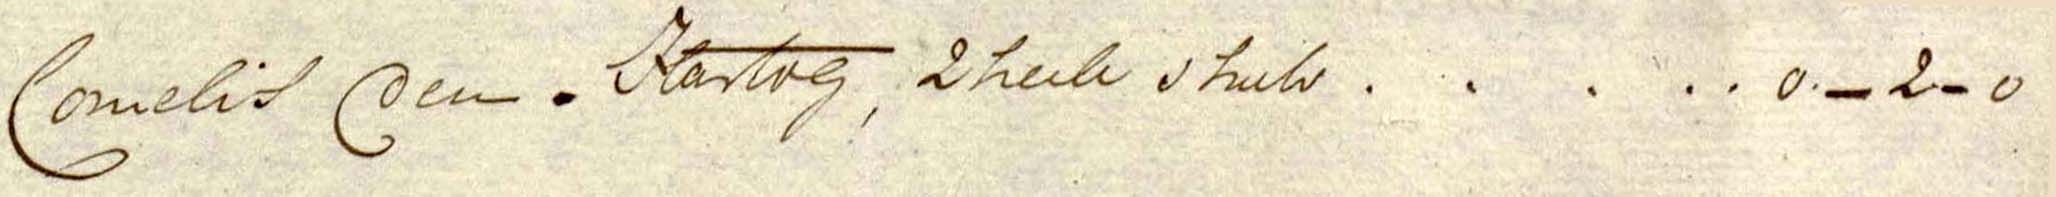 Cornelis Den. Hartog, 2 heele stuks . . . . . 0.-2-0